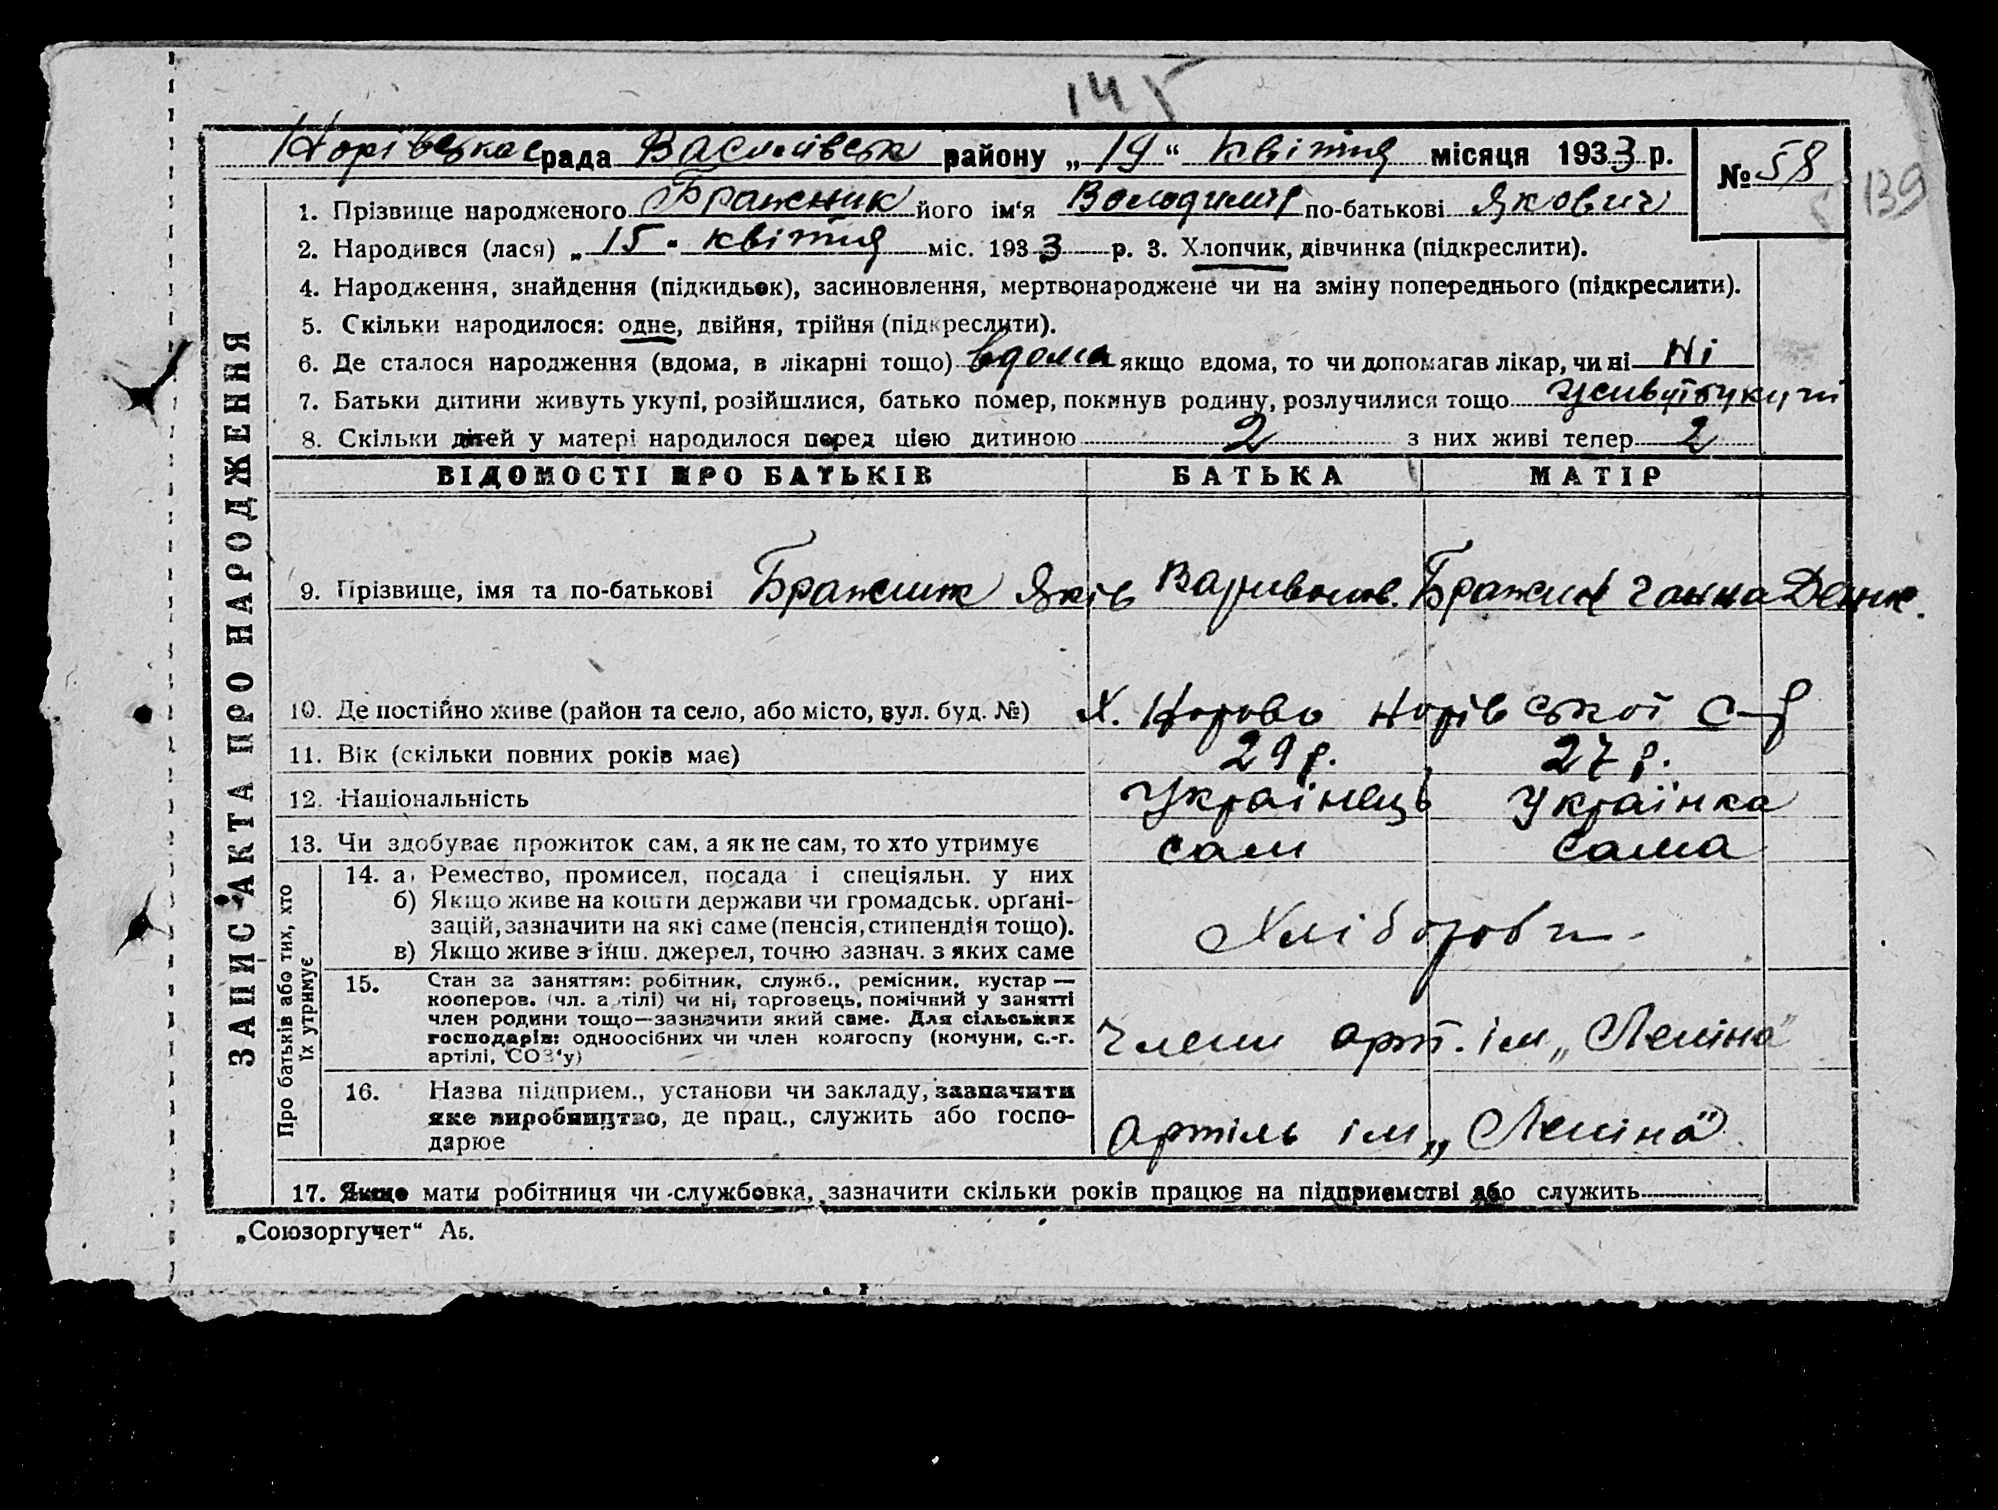 145
Норівецкас рада Василівськ району „19“ квітня місяця 1933 р.
№ 58
139
1. Прізвище народженого Бражник його ім'я Володимір по-батькові Якович
2. Народився (лася) „15" квітня міс. 1933 р. 3. Хлопчик, дівчинка (підкреслити).
4. Народження, знайдення (підкидьок), засиновлення, мертвонароджене чи на зміну попереднього (підкреслити).
5. Скільки народилося: одне, двійня, трійня (підкреслити).
6. Де сталося народження (вдома, в лікарні тощо) вдома якщо вдома, то чи допомагав лікар, чи ні Ні
7. Батьки дитини живуть укупі, розійшлися, батько помер, покинув родину, розлучилися тощо
8. Скільки дітей у матері народилося перед цією дитиною 2 з них живі тепер 2
ВІДОМОСТІ ПРО БАТЬКІВ БАТЬКА МАТІР
9. Прізвище, імя та по-батькові Бражник Яків Варивонов. Бражник Ганна Денис.
10. Де постійно живе (район та село, або місто, вул. буд. №) Х. Норово Норівської С-р
11. Вік (скільки повних років має) 29 р. 27 р.
12. Національність Українець Українка
13. Чи здобуває прожиток сам, а як не сам, то хто утримує сам сама
14. а) Ремество, промисел, посада і спеціяльн. у них
б) Якщо живе на кошти держави чи громадськ. органі-
зацій, зазначити на які саме (пенсія, стипендія тощо).
в) Якщо живе з інш. джерел, точно зазнач. з яких саме
Хліборови
15. Стан за заняттям: робітник, служб., ремісник, кустар —
кооперов. (чл. артілі) чи ні, торговець, помічний у занятті
член родини тощо—зазначити який саме. Для сільських
господарів: одноосібних чи член колгоспу (комуни, с.-г.
артілі, СОЗ'у)
Члени арт. ім „Леніна"
16. Назва підприєм., установи чи закладу, зазначити
яке виробництво, де прац., служить або госпо-
дарює
Артіль ім „Леніна"
17. Якщо мати робітниця чи службовка, зазначити скільки років працює на підприємстві або служить
ЗАПИС АКТА ПРО НАРОДЖЕННЯ
Про батьків або тих, хто
їх утримує
„Союзоргучет“ А5.